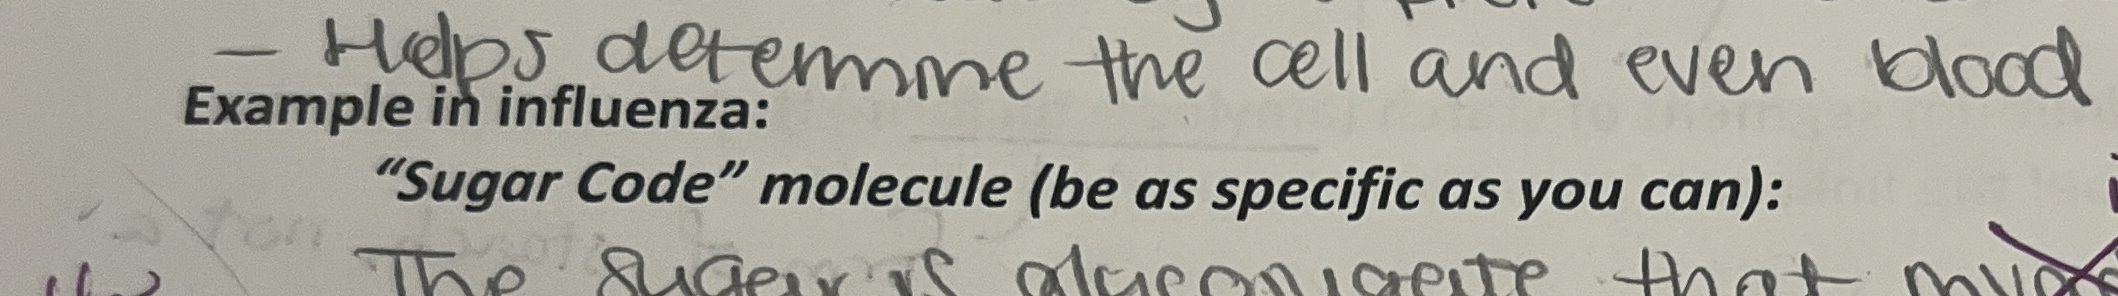 - Helps determine the cell and even blood
Example in influenza:
"Sugar Code" molecule (be as specific as you can):
The sugar is that